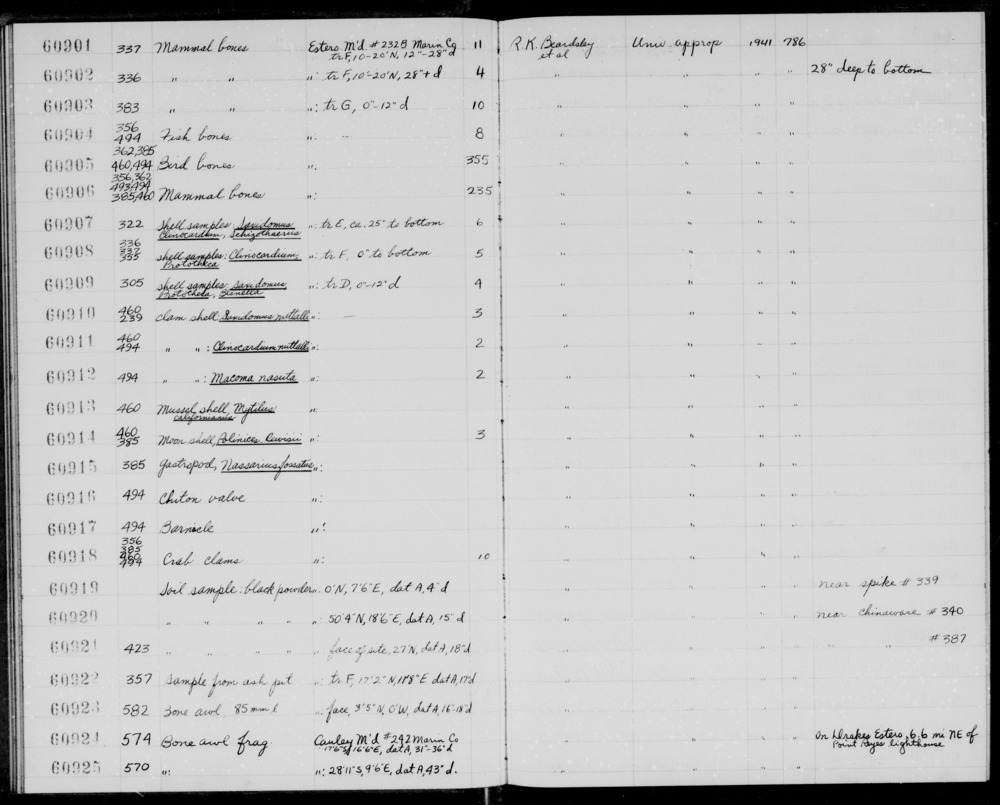 60901 337 Mammal bones Estero M'd. #232B Marin Co 11 R.K. Beardsley Univ approp 1941 786
tr F, 10-20'N, 12"-28"d et al
60902 336 " " ": tr F, 10-20'N, 28"+d 4 " " " " 28" deep to bottom
60903 383 " " ": tr G, 0"-12"d 10 " " " "
356
60904 494 Fish bones ": - 8 " " " "
362,385
60905 460,494 Bird bones ": 355 " " " "
356,362
493,494
60906 385,460 Mammal bones ": 235 " " " "
60907 322 Shell samples: Saxidomus, ": tr E, ca. 25" to bottom 6 " " " "
Clinocardium, Schizothaerus
336
337
60908 335 shell samples: Clinocardium, ": tr F, 0" to bottom 5 " " " "
Protothaca
60909 305 shell samples: Saxidomus, ": tr D, 0-12"d 4 " " " "
Protothaca,
460
60910 239 clam shell: Saxidomus nuttalli ": - 3 " " " "
460
60911 494 " ": Clinocardium nuttalli ": 2 " " " "
60912 494 " ": Macoma nasuta ": 2 " " " "
60913 460 Mussel shell, Mytilus ": " " " "
californianus
460
60914 385 Moon shell, Polinices lewisii ": 3 " " " "
60915 385 Gastropod, Nassarius fossatus ": " " " "
60916 494 Chiton valve ": " " " "
60917 494 Barnicle ": " " " "
356
385
460
60918 494 Crab clams ": 10 " " " "
60919 Soil sample: black powder ": 0'N, 7'6"E, dat A, 4"d " " " " near spike #339
60920 " " " " ": 50'4"N, 18'6"E, dat A, 15"d " " " " near chinaware #340
60921 423 " " " " ": face of site, 27'N, dat A, 18"d " " " " " " #387
60922 357 Sample from ash pit ": tr F, 17'2"N, 11'8"E dat A, 17"d " " " "
60923 582 Bone awl, 85 mm l ": face, 3'5"N, 0'W, dat A, 16-18"d " " " "
60924 574 Bone awl frag Cauley M'd #242 Marin Co " " " " On Drakes Estero, 6.6 mi NE of
17'6"S, 16'6"E, dat A, 31"-36"d Point Reyes lighthouse
60925 570 ": ": 28'11"S, 9'6"E, dat A, 43"d. " " " "